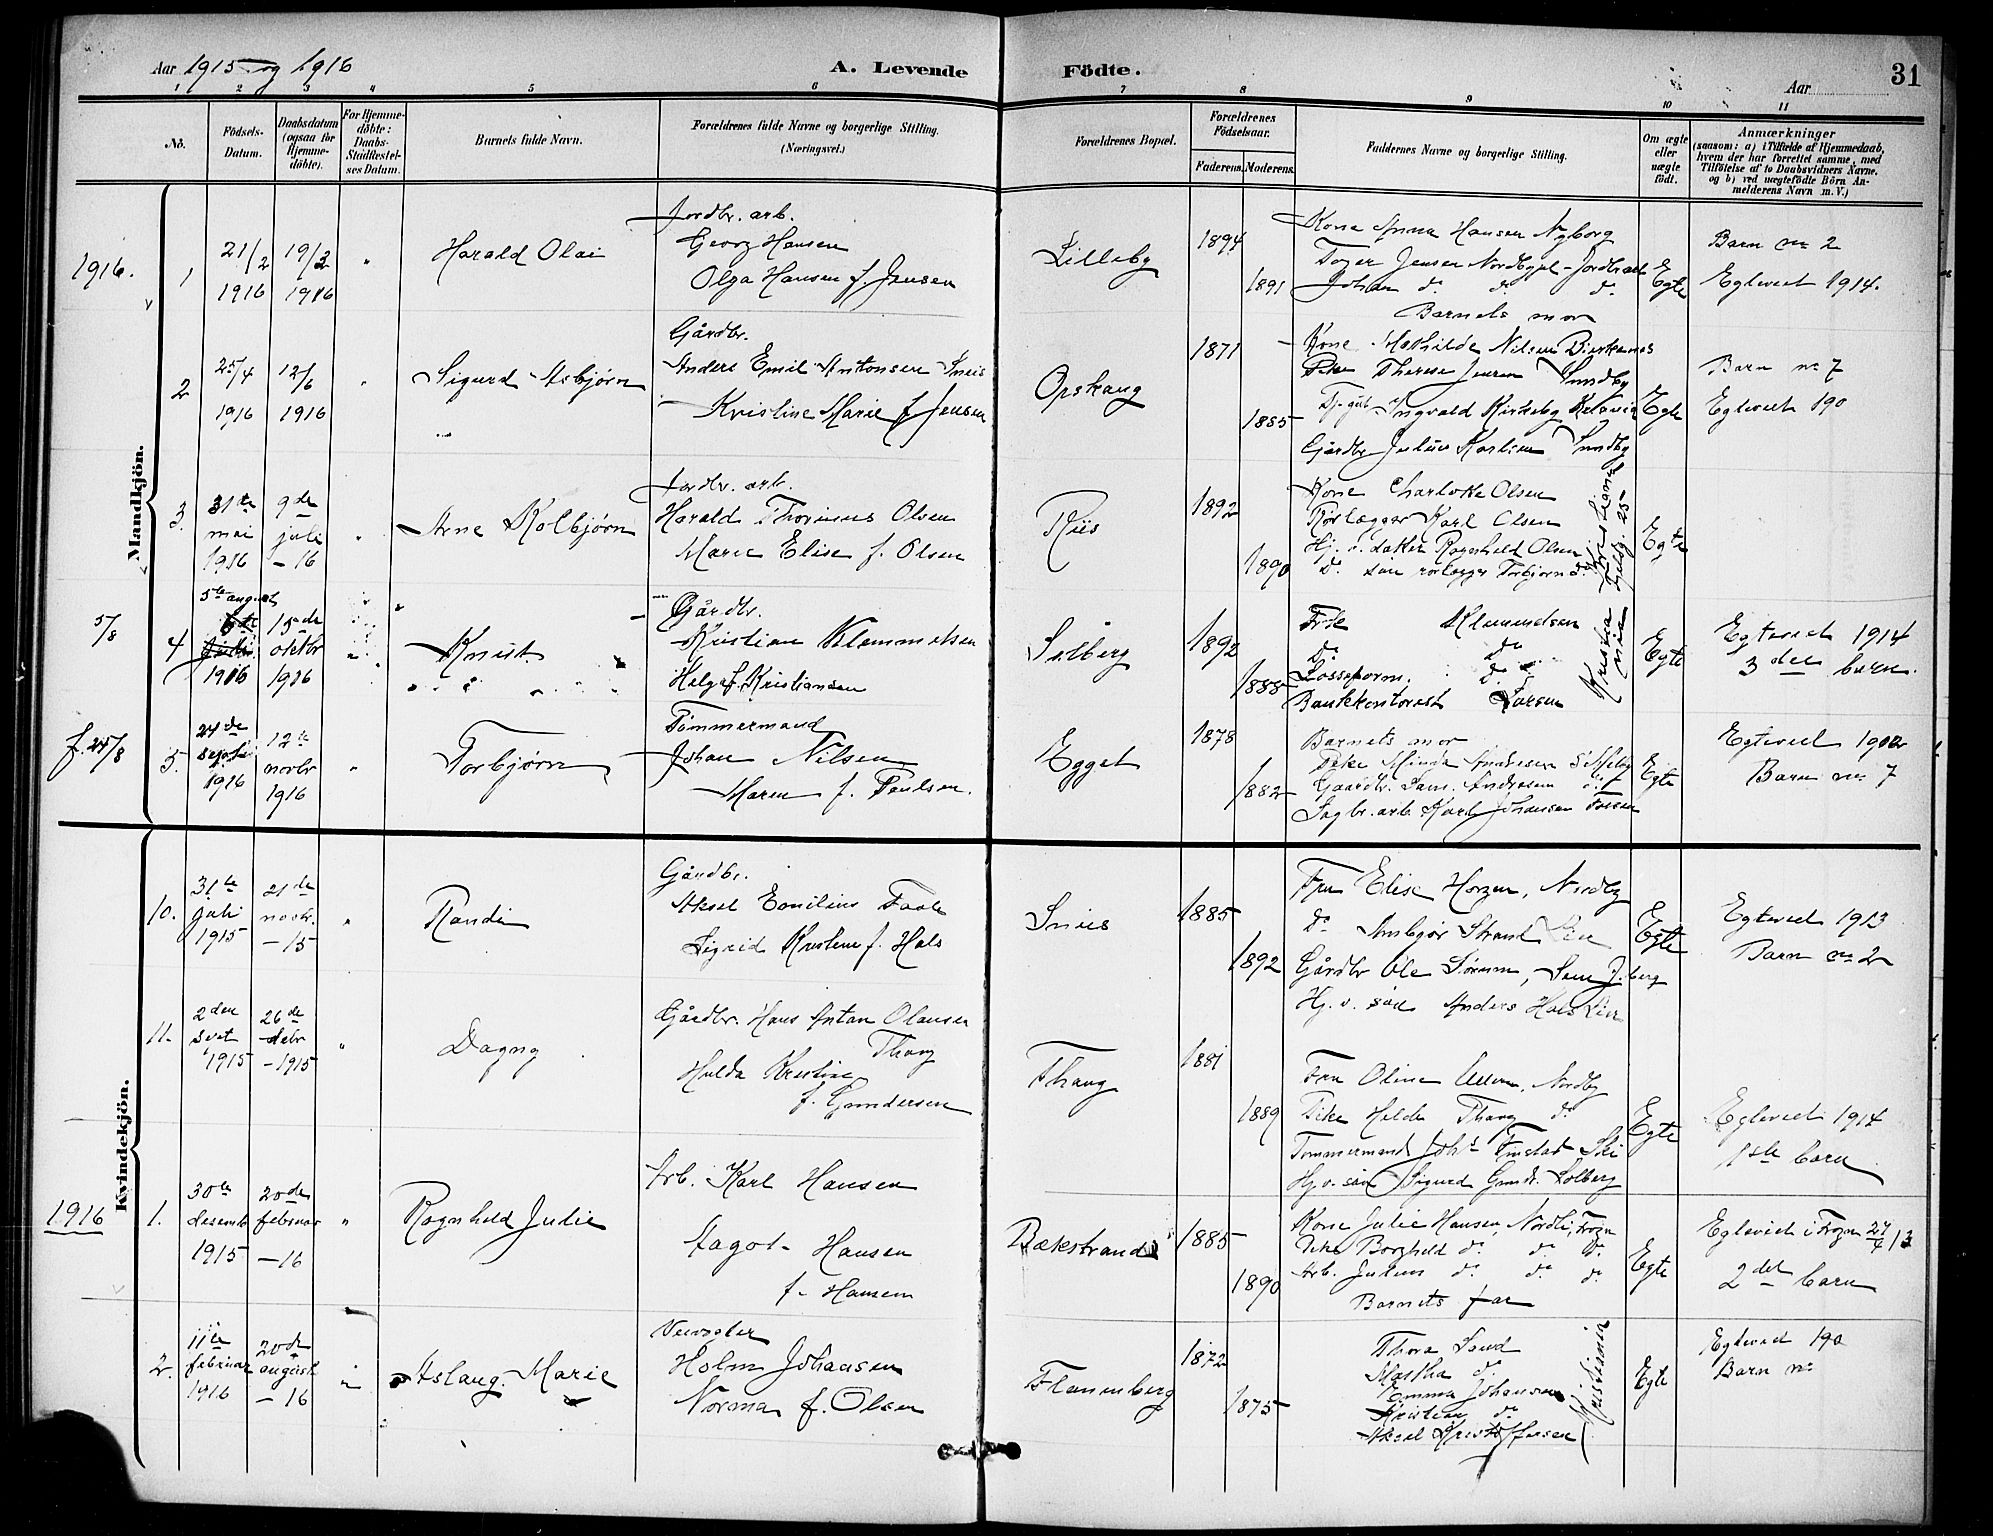 Aar 1915 og 1916
A. Levende Födte.
Aar
31
1 2 3 4 5 6 7 8 9 10 11
No.
Födsels-Datum.
Daabsdatum (ogsaa for Hjemme-döbte).
For Hjemme-döbte: Daabs-Stadfæstel-ses Datum.
Barnets fulde Navn.
Forældrenes fulde Navne og borgerlige Stilling.
(Næringsvei.)
Forældrenes Bopæl.
Forældrenes Födselsaar.
Faderens. Moderens.
Faddernes Navne og borgerlige Stilling.
Om ægte eller uægte födt.
Anmærkninger
(saasom: a) i Tilfælde af Hjemmedaab,
hvem der har forrettet samme, med
Tilföielse af to Daabsvidners Navne.
og b) ved uægtefödte Börn An-
melderens Navn m. V.)
Mandkjön.
1916.
1 21/2 1916 19/3 1916 " Harald Olai
Jordbr. arb.
Georg Hansen
Olga Hansen f. Jensen
Lilleby 1894 1891
Kone Anna Hansen Nyborg
Jensen
Johan do do do
Barnets mor
Egte
Barn no 2
Egteviet 1914.
2 25/4 1916 12/6 1916 " Sigurd Asbjørn
Gårdbr.
Anders Emil Antonsen Sneis
Kristine Marie f Jensen
Opskaug 1871 1885
Kone Mathilde Nilsen
Pike Therese Jensen Sundby
Ingvald Kirkeby
Gårdbr Julius Karlsen Sundby
Egte
Barn no 7
Egteviet 190
3. 31te mai 1916 9de juli - 16 " Arne Kolbjørn
Jordbr. arb.
Harald Thorinus Olsen
Marie Elise f. Olsen
Riis 1892 1890
Kone Charlotte Olsen
Rørlægger Karl Olsen
Hj. v. datter Ragnhild Olsen
do søn rørlægger Torbjørn do
Egte
5/8
4 5te august 1916 15de oktbr 1916 Knut.
Gårdbr.
Kristian Klemmetsen
Helga f. Kristiansen
Solberg 1892 1888
Frk Klemmetsen
do do
Losseform. do
Bankkontorist Larsen
Kristiania
Egte
Egteviet 1914
3 die barn.
f. 24/8
5. 24de 1916 12te novbr 1916 " Torbjørn
Tømmermand
Johan Nilsen
Maren f. Paulsen.
Egget 1878 1882
Barnets mor
Pike Minda Andresen
Gaardbr. Sam. Andresen do
Sagbr. arb. Karl Johansen Fossen
Egte
Egteviet 1902
Barn no 7
Kvindekjön.
10. 31te juli 1915 21de novbr. - 15 " Randi
Gårdbr.
Aksel Emilius
Sigrid Kristine f. Hals
Sneis 1885 1892
Fru Elise Horgen, Nordby
do Synbjør Strand Lier
Gårdbr Ole Sørum,
Hj. v. søn Anders Hals Lier
Egte
Egteviet 1913
Barn no 2
11. 2den sept 1915 26de debr - 1915 " Dagny
Gårdbr. Hans Anton Olausen
Thaug
Hulda Kristine
f. Gundersen
Thaug 1881 1889
Fru Oline, Nordby
Pike Helda Thaug do
Tømmermand Johs Finstad Ski
Hj. v. søn Sigurd Gund. Solberg
Egte
Egteviet 1914
1ste barn
1916
1. 30te desemb 1915 20de februar - 16 " Ragnhild Julie
Arb. Karl Hansen
Aagot Hansen
f. Hansen
Bækstrand 1885 1890
Kone Julie Hansen, Nordli, Frogn
Pike Borghild do do do
Arb. Julius do do do
Barnets far
Egte
Egteviet i Frogn 27/4 13
2det barn
2. 11te februar 1916 20de august - 16 " Aslaug Marie
Veivogter
Holm Johansen
Norma f. Olsen
Flanenberg 1872 1875
Thora Sand
Martha do
Emma Johansen
Kristian do
Aksel Kristoffersen
Egte
Egteviet 190
Barn no